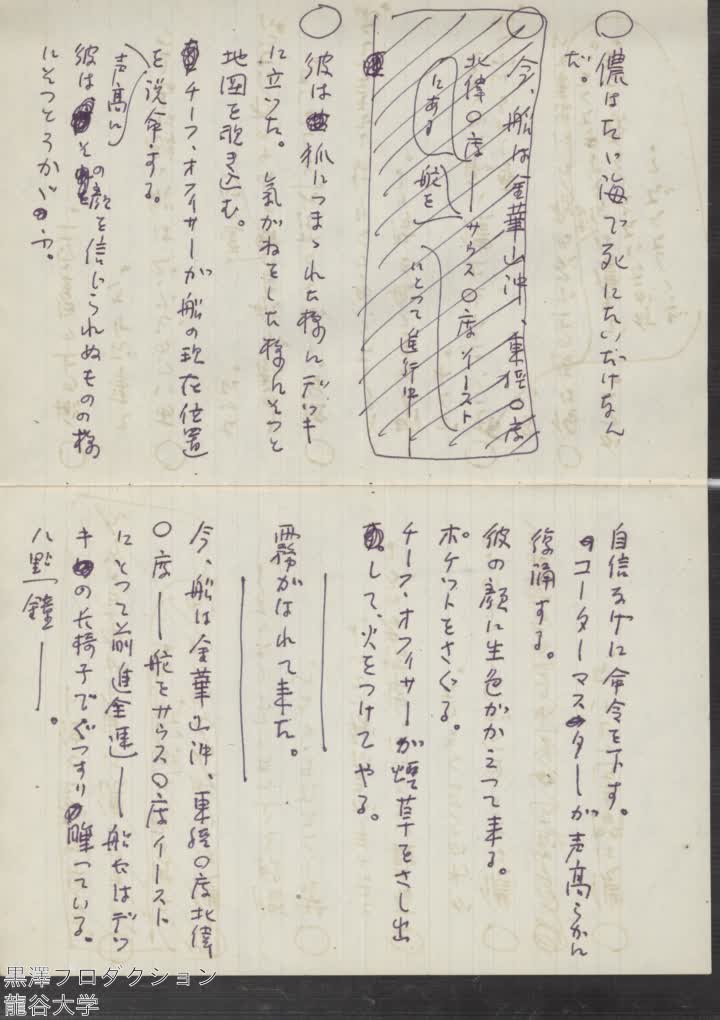 ○ 儂はたゞ海で死にたいだけなん
だ。
○ 今、船は金華山沖、東経〇度
北緯〇度――サウス〇度イースト
にある
舵を
にとつて進行中――
○ 彼は狐につまゝれた様にデッキ
に立つた。氣がねをした様にそつと
地図を覗き込む。
チーフ・オフィサーが船の現在位置
を説命する。
声高に
彼はその顔を信じられぬものの様
にそつとうかゞう。
自信なげに命令を下す。
コーターマスターが声高らかに
復誦する。
彼の顔に生色がかえつて来る。
ポケットをさぐる。
チーフ・オフィサーが煙草をさし出
して、火をつけてやる。
霧がはれて来た。
今、船は金華山沖、東経〇度北緯
〇度――舵をサウス〇度イースト
にとつて前進全速――船長はデッ
キの長椅子でぐつすり睡つている。
八點鐘――。
黒澤プロダクション
龍谷大学